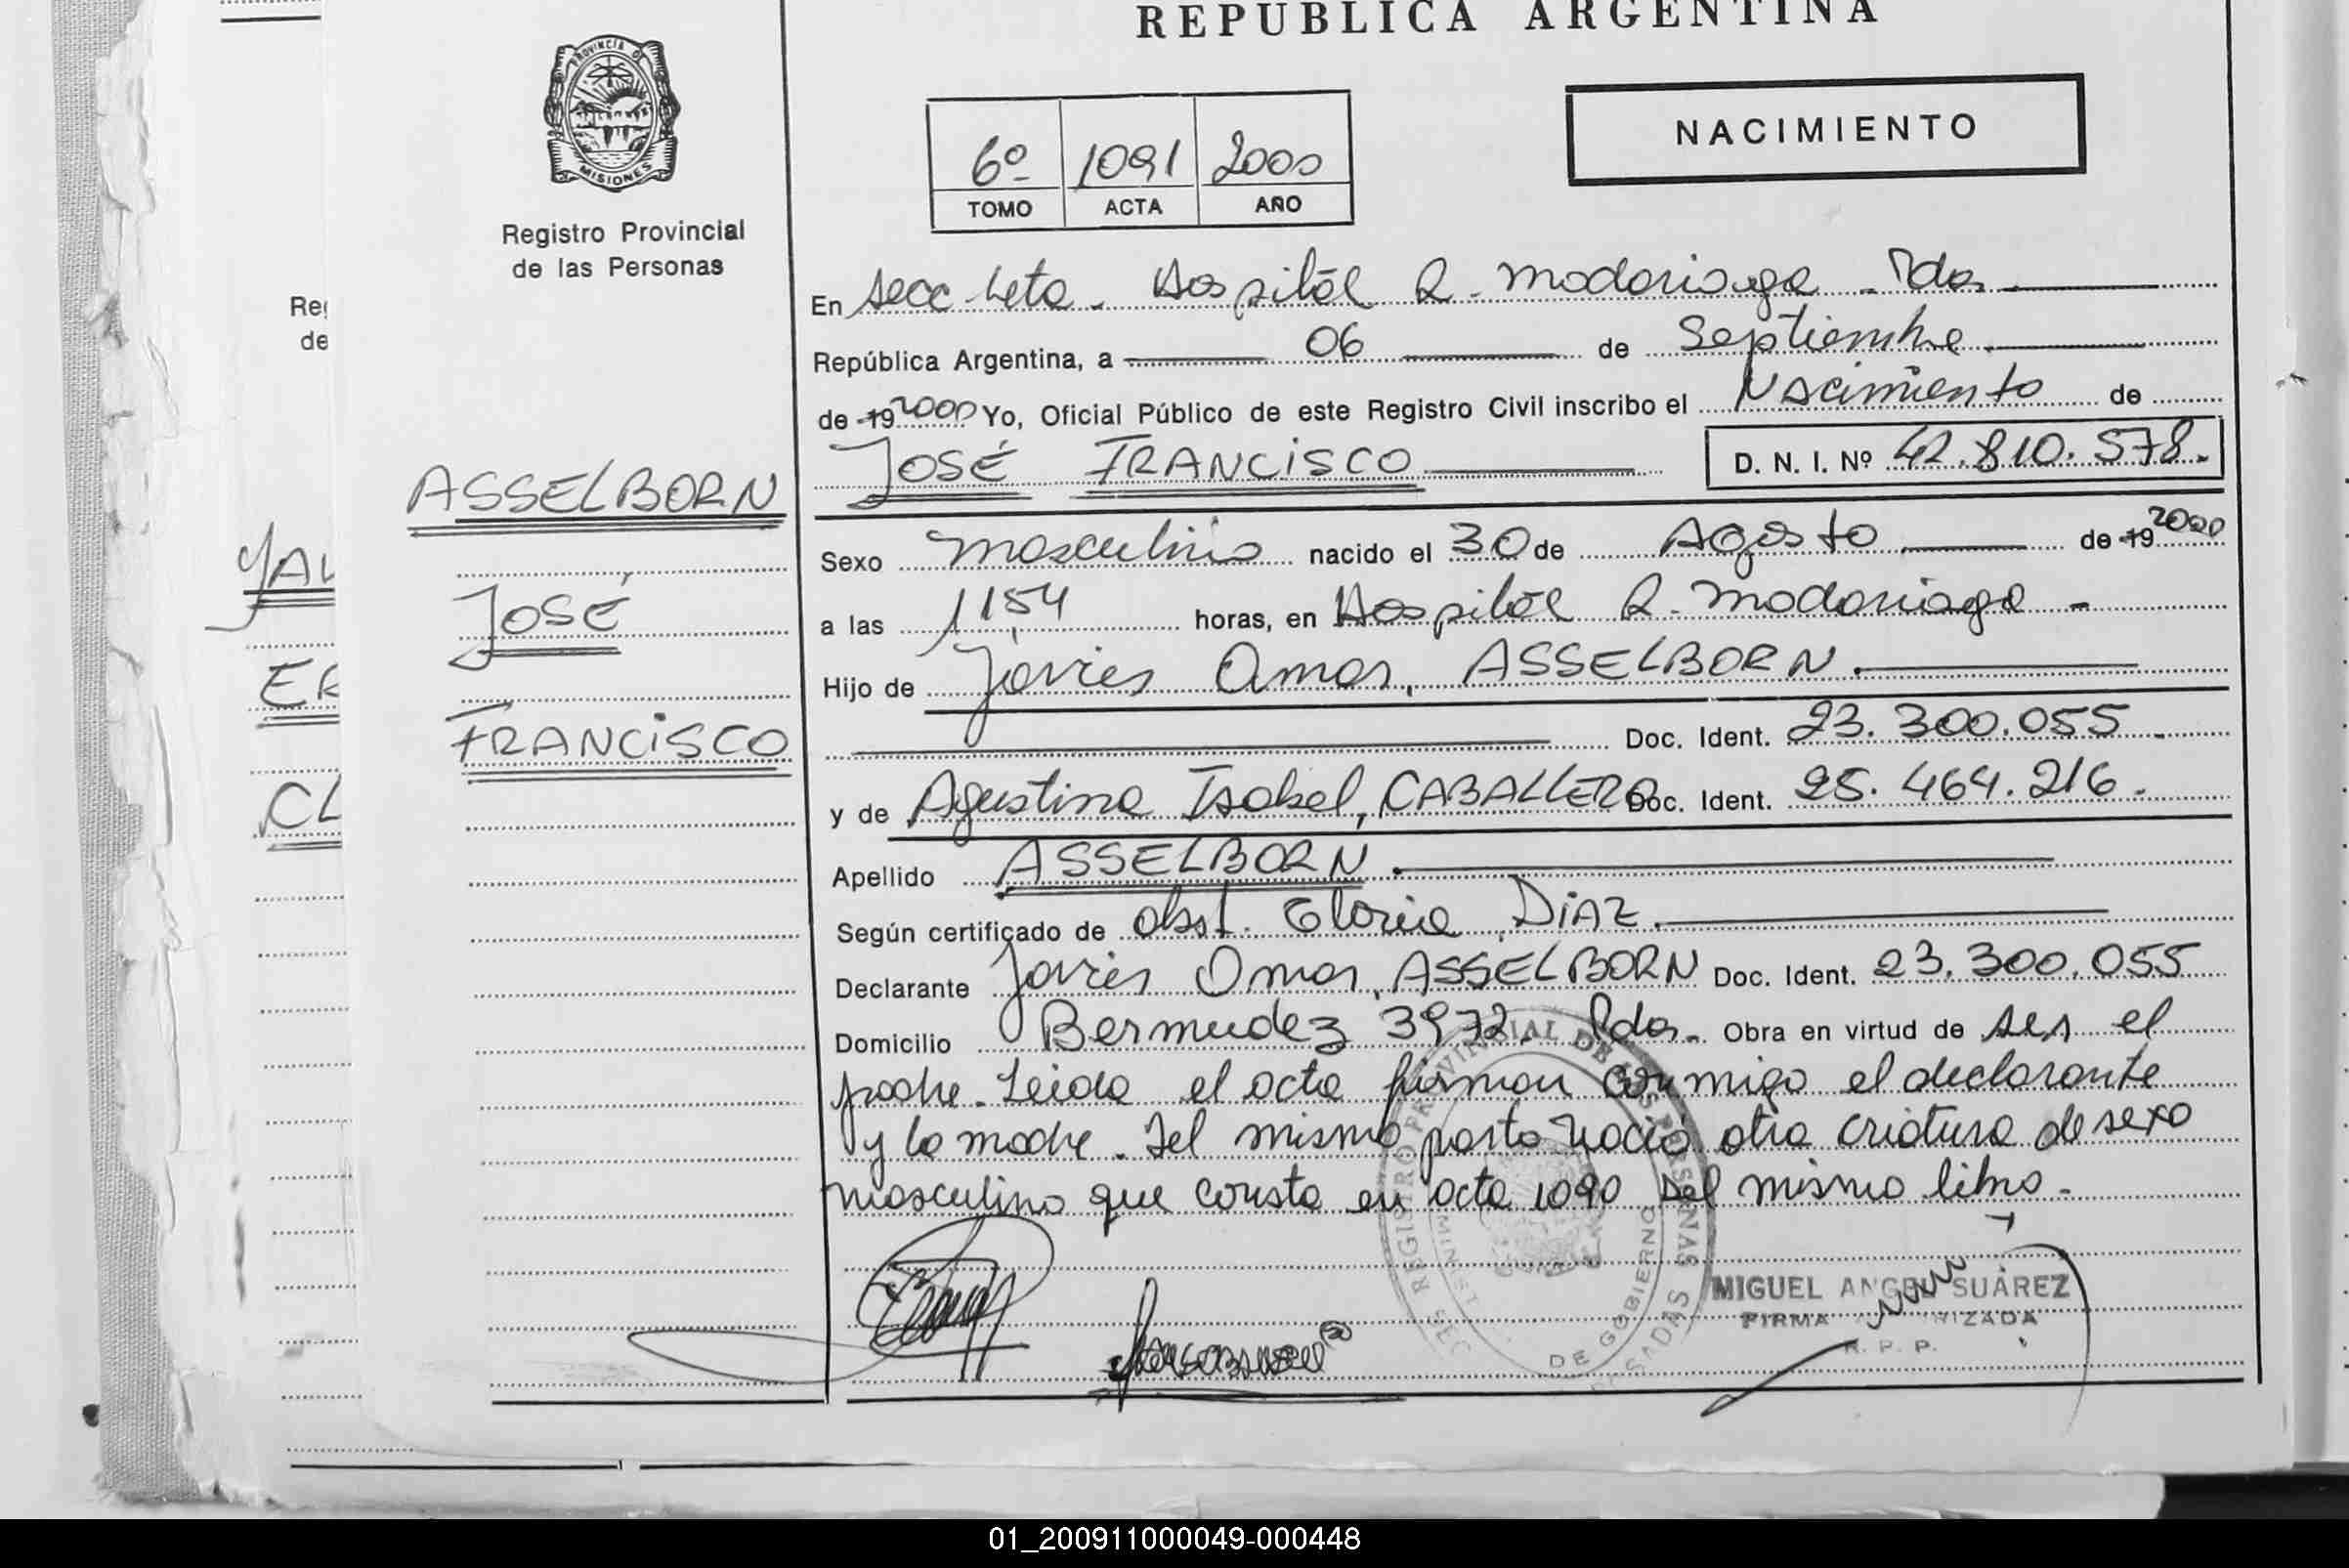 REPUBLICA ARGENTINA
PROVINCIA D
MISIONES
Registro Provincial
de las Personas
Reg
de
NACIMIENTO
6º 1091 2000
TOMO ACTA AÑO
En Secc Leta. Hospital R. Madariaga - Pdas.
República Argentina, a 06 de Septiembre
de 19 2000 Yo, Oficial Público de este Registro Civil inscribo el Nacimiento de
JOSÉ FRANCISCO D. N. I. Nº 42.810.578.
ASSELBORN
JOSÉ
FRANCISCO
YAL
ER
CL
Sexo masculino nacido el 30 de Agosto de 19 2000
a las 11,54 horas, en Hospital R. Madariaga -
Hijo de Javier Omar, ASSELBORN.
Doc. Ident. 23.300.055
y de Agustina Isabel, CABALLERO Doc. Ident. 25.464.216.
Apellido ASSELBORN.
Según certificado de obst. Gloria, DIAZ.
Declarante Javier Omar, ASSELBORN Doc. Ident. 23.300.055
Domicilio Bermudez 3972. Pdas. Obra en virtud de ser el
padre. Leida el acta firman conmigo el declarante
y la madre. Del mismo parto nació otra criatura de sexo
masculino que consta en acta 1090 del mismo libro.
REGISTRO PROVINCIAL DE LAS PERSONAS
DE GOBIERNO
MIGUEL ANGEL SUÁREZ
FIRMA AUTORIZADA
R. P. P.
01_200911000049-000448